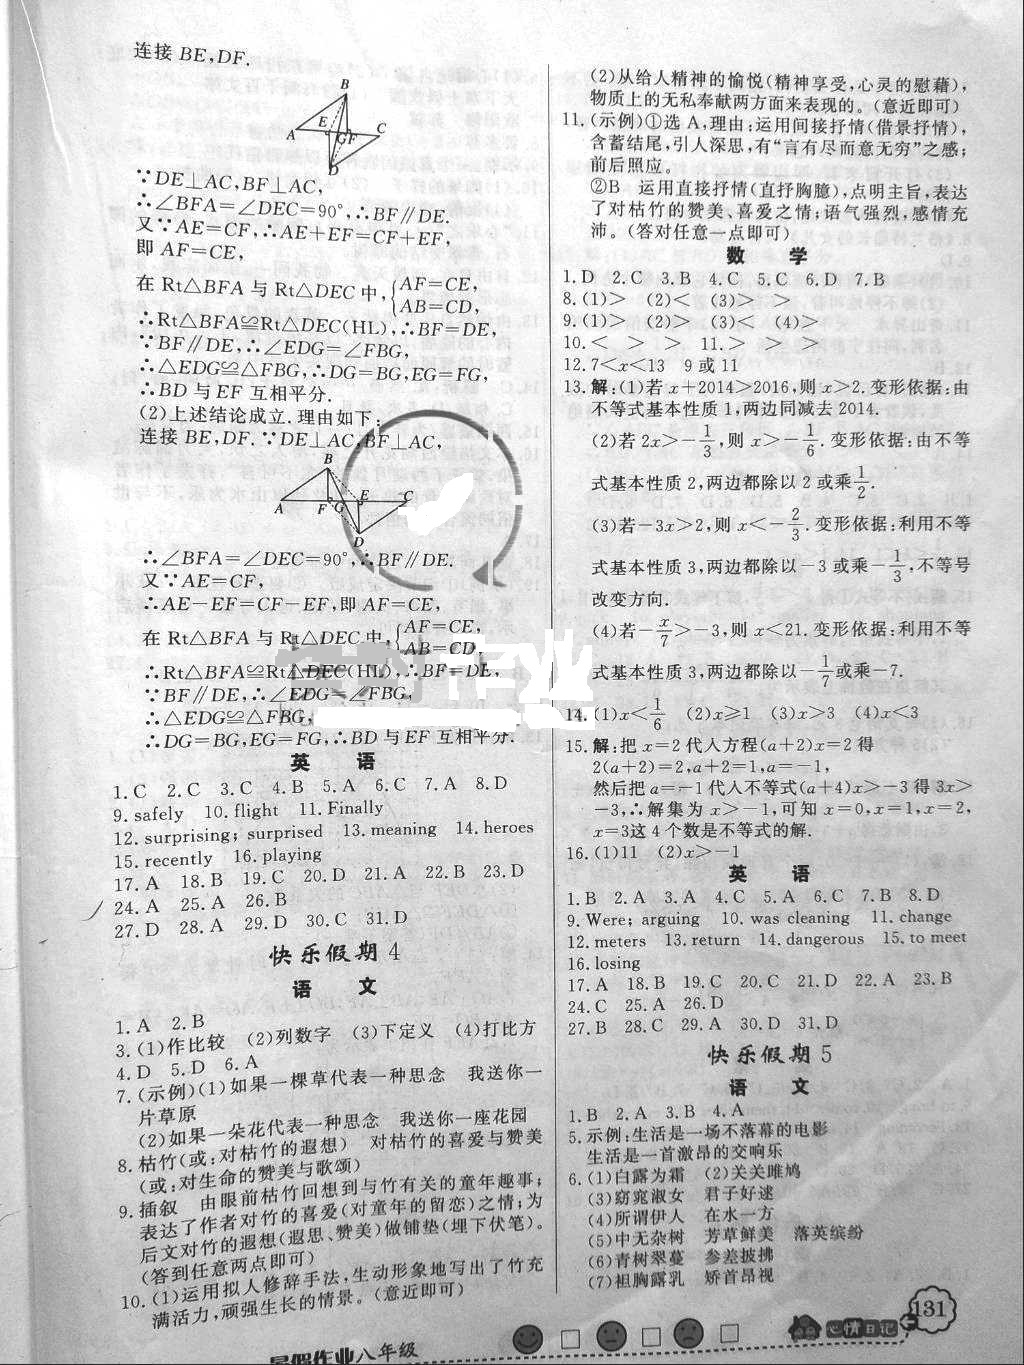 连接 BE,DF.
B
E
A
C
G
F
D
∵DE⊥AC,BF⊥AC,
∴∠BFA=∠DEC=90°,∴BF∥DE.
又∵AE=CF,∴AE+EF=CF+EF,
即 AF=CE,
在 Rt△BFA 与 Rt△DEC 中,{AF=CE,
AB=CD,
∴Rt△BFA≌Rt△DEC(HL),∴BF=DE,
∵BF∥DE,∴∠EDG=∠FBG,
∴△EDG≌△FBG,∴DG=BG,EG=FG,
∴BD 与 EF 互相平分.
(2)上述结论成立.理由如下:
连接 BE,DF.∵DE⊥AC,BF⊥AC,
B
E
C
A
F
G
D
∴∠BFA=∠DEC=90°,∴BF∥DE.
又∵AE=CF,
∴AE-EF=CF-EF,即 AF=CE,
在 Rt△BFA 与 Rt△DEC 中,{AF=CE,
AB=CD,
∴Rt△BFA≌Rt△DEC(HL),∴BF=DE,
∵BF∥DE,∴∠EDG=∠FBG,
∴△EDG≌△FBG,
∴DG=BG,EG=FG,∴BD 与 EF 互相平分.
英 语
1.C 2.C 3.C 4.B 5.A 6.C 7.A 8.D
9.safely 10.flight 11.Finally
12.surprising; surprised 13.meaning 14.heroes
15.recently 16.playing
17.A 18.B 19.C 20.D 21.A 22.B 23.D
24.A 25.A 26.B
27.D 28.A 29.D 30.C 31.D
快乐假期 4
语 文
1.A 2.B
3.(1)作比较 (2)列数字 (3)下定义 (4)打比方
4.D 5.D 6.A
7.(示例)(1)如果一棵草代表一种思念 我送你一
片草原
(2)如果一朵花代表一种思念 我送你一座花园
8.枯竹(或:对枯竹的遐想) 对枯竹的喜爱与赞美
(或:对生命的赞美与歌颂)
9.插叙 由眼前枯竹回想到与竹有关的童年趣事;
表达了作者对竹的喜爱(对童年的留恋)之情;为
后文对竹的遐想(遐思、赞美)做铺垫(埋下伏笔)。
(答到任意两点即可)
10.(1)运用拟人修辞手法,生动形象地写出了竹充
满活力,顽强生长的情景。(意近即可)
(2)从给人精神的愉悦(精神享受,心灵的慰藉),
物质上的无私奉献两方面来表现的。(意近即可)
11.(示例)①选 A,理由:运用间接抒情(借景抒情),
含蓄结尾,引人深思,有“言有尽而意无穷”之感;
前后照应。
②B 运用直接抒情(直抒胸臆),点明主旨,表达
了对枯竹的赞美、喜爱之情;语气强烈,感情充
沛。(答对任意一点即可)
数 学
1.D 2.C 3.B 4.C 5.C 6.D 7.B
8.(1)> (2)< (3)> >
9.(1)> (2)> (3)< (4)>
10.< > > 11.> > >
12.7<x<13 9 或 11
13.解:(1)若 x+2014>2016,则 x>2.变形依据:由
不等式基本性质 1,两边同减去 2014.
(2)若 2x>-1/3,则 x>-1/6.变形依据:由不等
式基本性质 2,两边都除以 2 或乘1/2.
(3)若-3x>2,则 x<-2/3.变形依据:利用不等
式基本性质 3,两边都除以-3 或乘-1/3,不等号
改变方向.
(4)若-x/7>-3,则 x<21.变形依据:利用不等
式基本性质 3,两边都除以-1/7或乘-7.
14.(1)x<1/6 (2)x≥1 (3)x>3 (4)x<3
15.解:把 x=2 代入方程(a+2)x=2 得
2(a+2)=2,a+2=1,a=-1,
然后把 a=-1 代入不等式(a+4)x>-3 得 3x>
-3,∴解集为 x>-1,可知 x=0,x=1,x=2,
x=3这 4 个数是不等式的解.
16.(1)11 (2)x>-1
英 语
1.B 2.A 3.A 4.C 5.A 6.C 7.B 8.D
9.Were; arguing 10.was cleaning 11.change
12.meters 13.return 14.dangerous 15.to meet
16.losing
17.A 18.B 19.C 20.C 21.D 22.A 23.B
24.C 25.A 26.D
27.B 28.C 29.A 30.D 31.D
快乐假期 5
语 文
1.B 2.A 3.B 4.A
5.示例:生活是一场不落幕的电影
生活是一首激昂的交响乐
6.(1)白露为霜 (2)关关雎鸠
(3)窈窕淑女 君子好逑
(4)所谓伊人 在水一方
(5)中无杂树 芳草鲜美 落英缤纷
(6)青树翠蔓 参差披拂
(7)袒胸露乳 矫首昂视
暑假作业八年级
心情日记
131